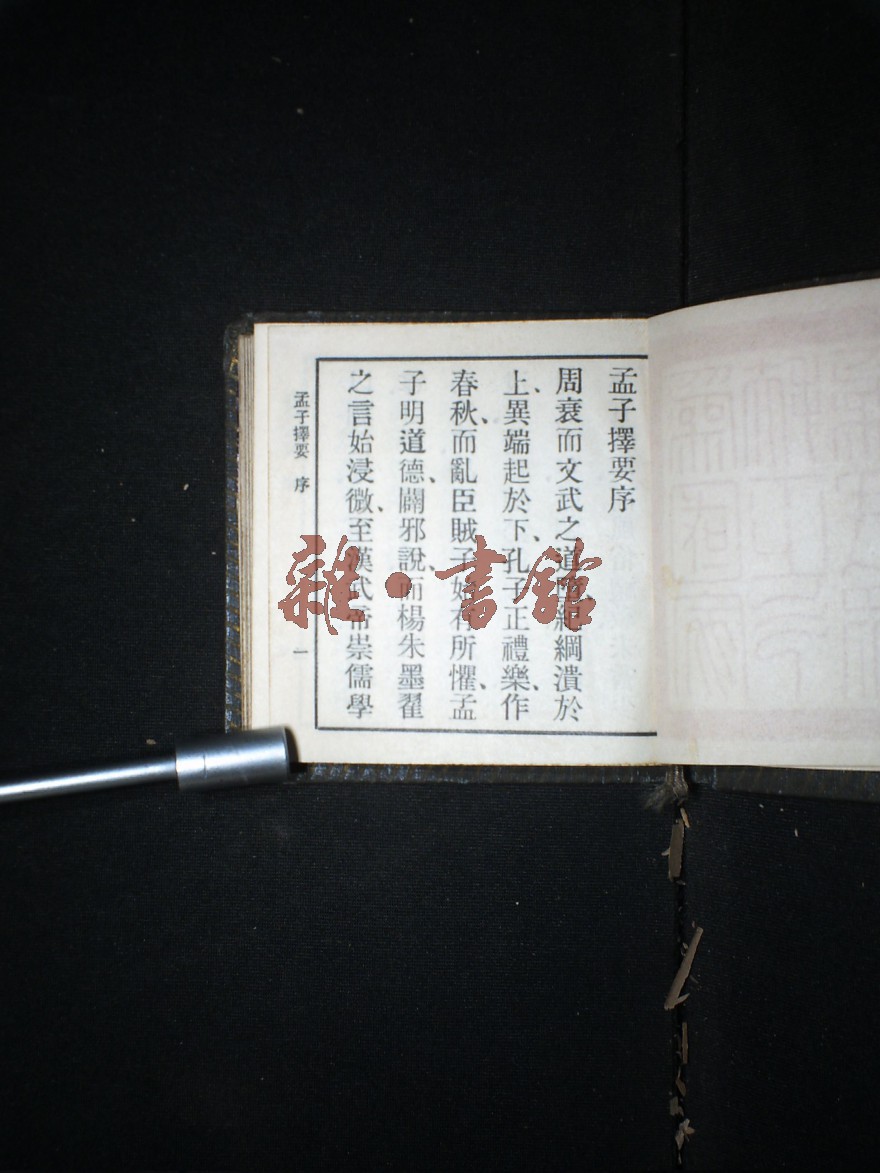 孟子擇要序
周衰而文武之道微、紀綱潰於
上、異端起於下、孔子正禮樂、作
春秋、而亂臣賊子始有所懼、孟
子明道德、闢邪說、而楊朱墨翟
之言始浸微、至漢武帝崇儒學
孟子擇要 序
一
雜·書館